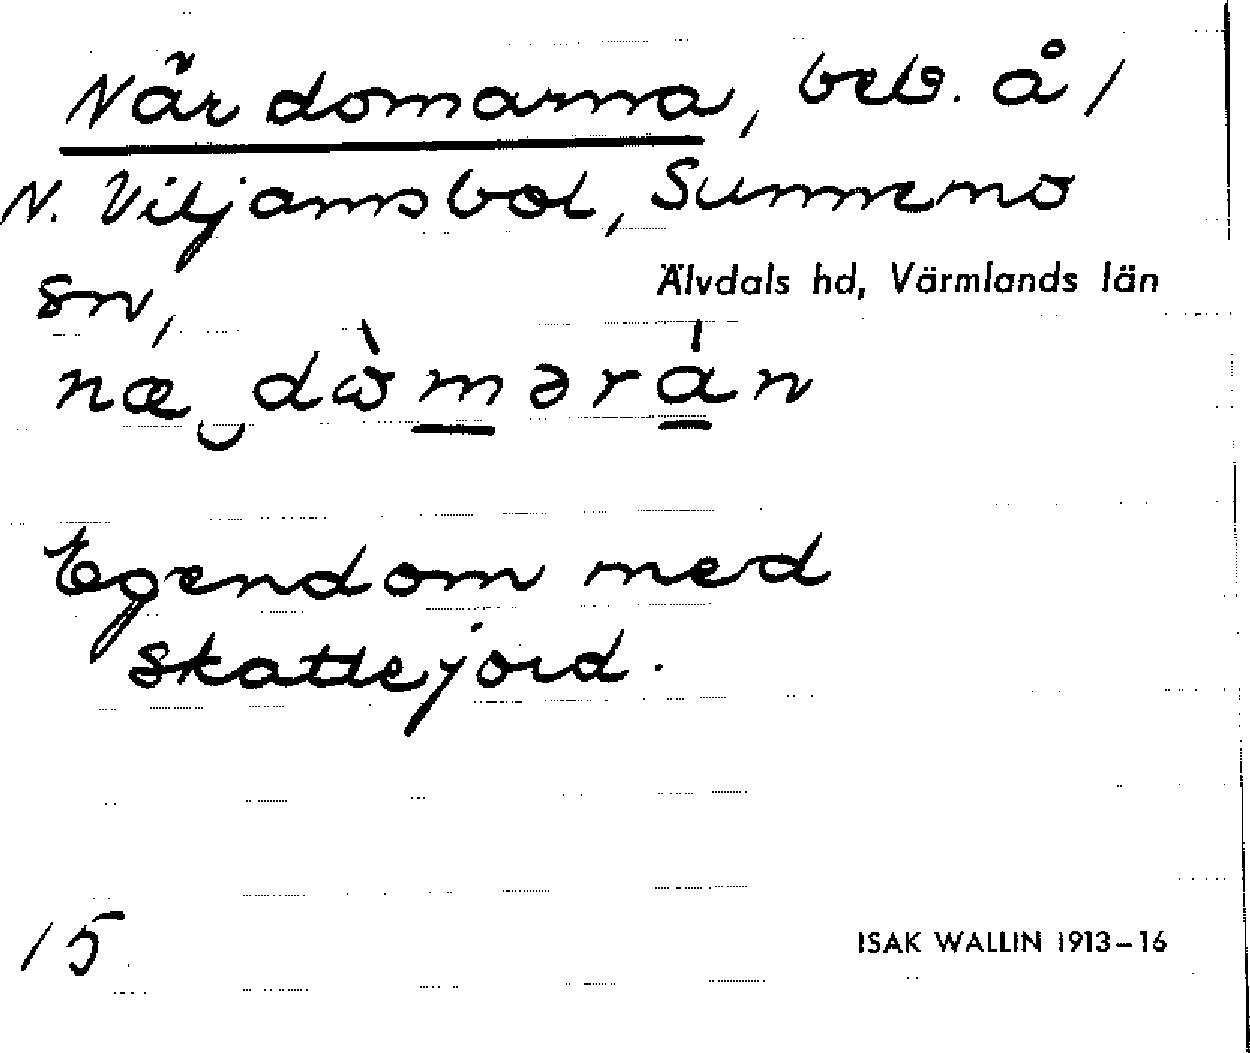 När domarna, beb. å 1
N. Viljamsbol, Sunnemo
sn,
Älvdals hd, Värmlands län
næ‿dɷ̀mərán
Egendom med
skattejord.
15
ISAK WALLIN 1913–16